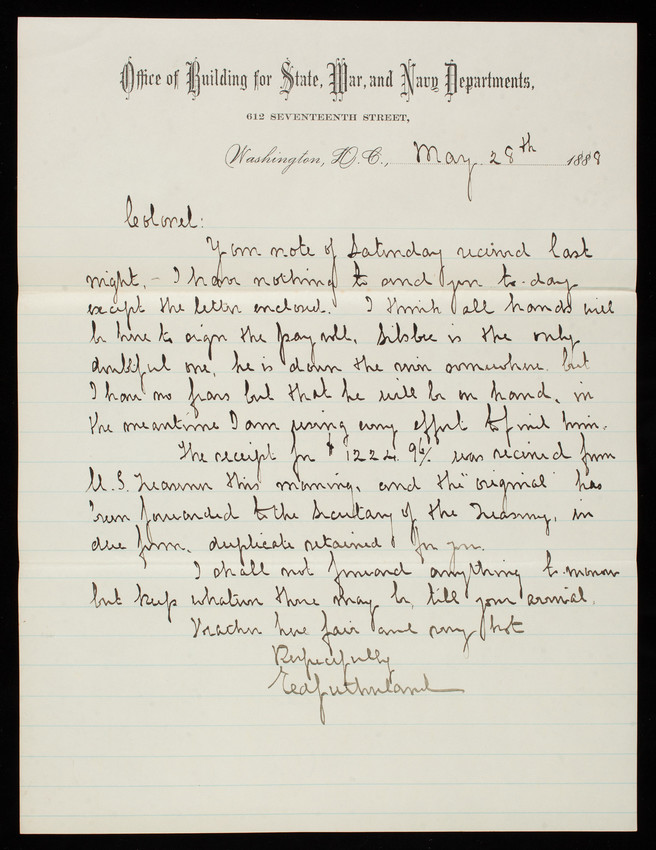 Office of Building for State, War, and Navy Departments,
612 SEVENTEENTH STREET,
Washington, D.C., May 28th 1888
Colonel:
Your note of Saturday received last
night, - I have nothing to send you to-day
except the letter enclosed. I think all hands will
be here to sign the pay roll, Silsbee is the only
doubtful one, he is down the river somewhere. but
I have no fears but that he will be on hand, in
the meantime I am using every effort to find him.
The receipt for $1224.96/ was received from
U.S. Treasurer this morning, and the "original" has
been forwarded to the Secretary of the Treasury, in
due form, duplicate retained for you.
I shall not forward anything to-morrow
but keep whatever there may be, till your arrival.
Weather here fair and very hot
Respectfully
Sutherland